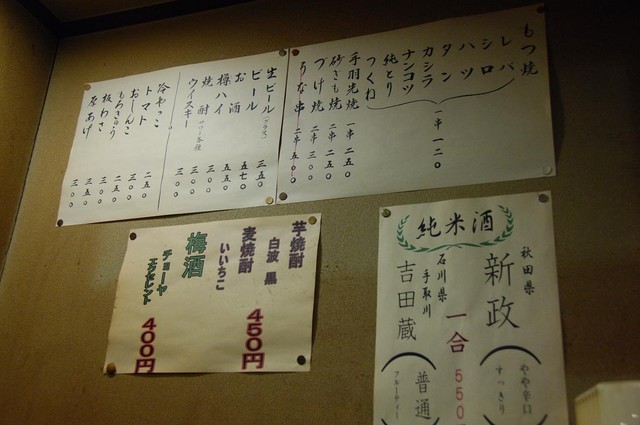 もつ焼
レバ
シロ
ハツ
タン
カシラ
ナンコツ
純とり
つくね
一串 一二〇
手羽先焼 一串 二五〇
砂ぎも焼 二串 二五〇
づけ焼 二串 三〇〇
うな串 二串 五〇〇
生ビール(グラス) 三五〇
ビール 五七〇
お酒 五五〇
樽ハイ 三〇〇
焼酎 三〇〇
ウイスキー 三〇〇
冷やっこ 二五〇
トマト 三〇〇
おしんこ 二五〇
もろきゅう 三〇〇
板わさ 三五〇
厚あげ 三〇〇
芋焼酎
白波 黒
麦焼酎
いいちこ
450円
梅酒
チョーヤ
エクセレント
400円
純米酒
秋田県
新政
やや辛口
すっきり
一合 550
石川県
手取川
吉田蔵
普通
フルーティー